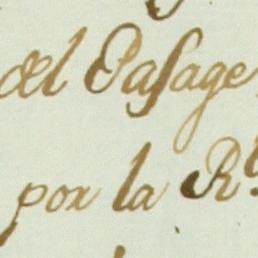 del Pasage
por la Rl.